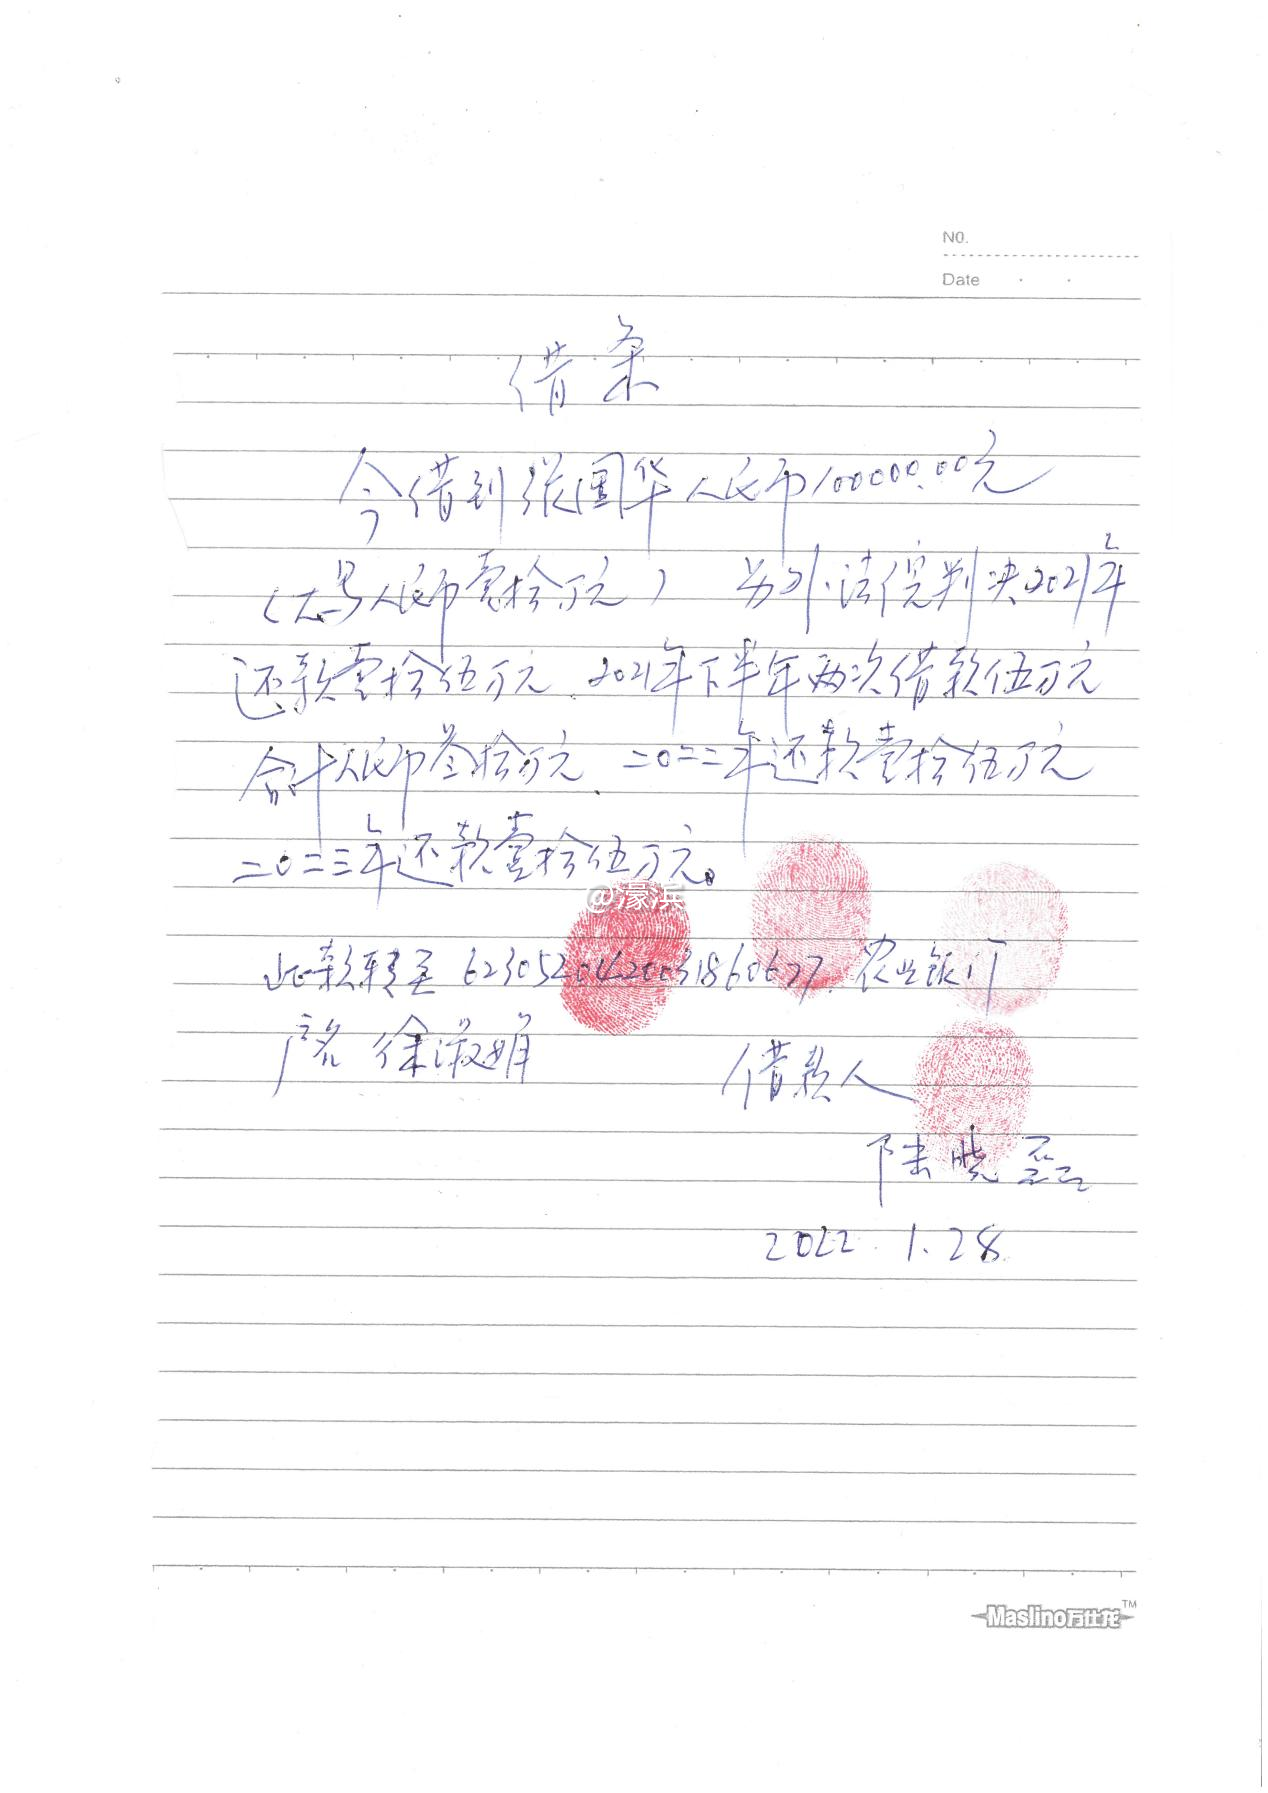 NO.
Date
借条
今借到张国华人民币100000.00元
（大写人民币壹拾万元） 另外法院判决2021年
还款壹拾伍万元、2021年下半年两次借款伍万元
合计人民币叁拾万元、二〇二二年还款壹拾伍万元
二〇二三年还款壹拾伍万元。
@濠浜
此款转至 6230520420031860677. 农业银行
户名 徐淑娟
借款人
陆晓磊
2022.1.28
Maslino万仕龙™